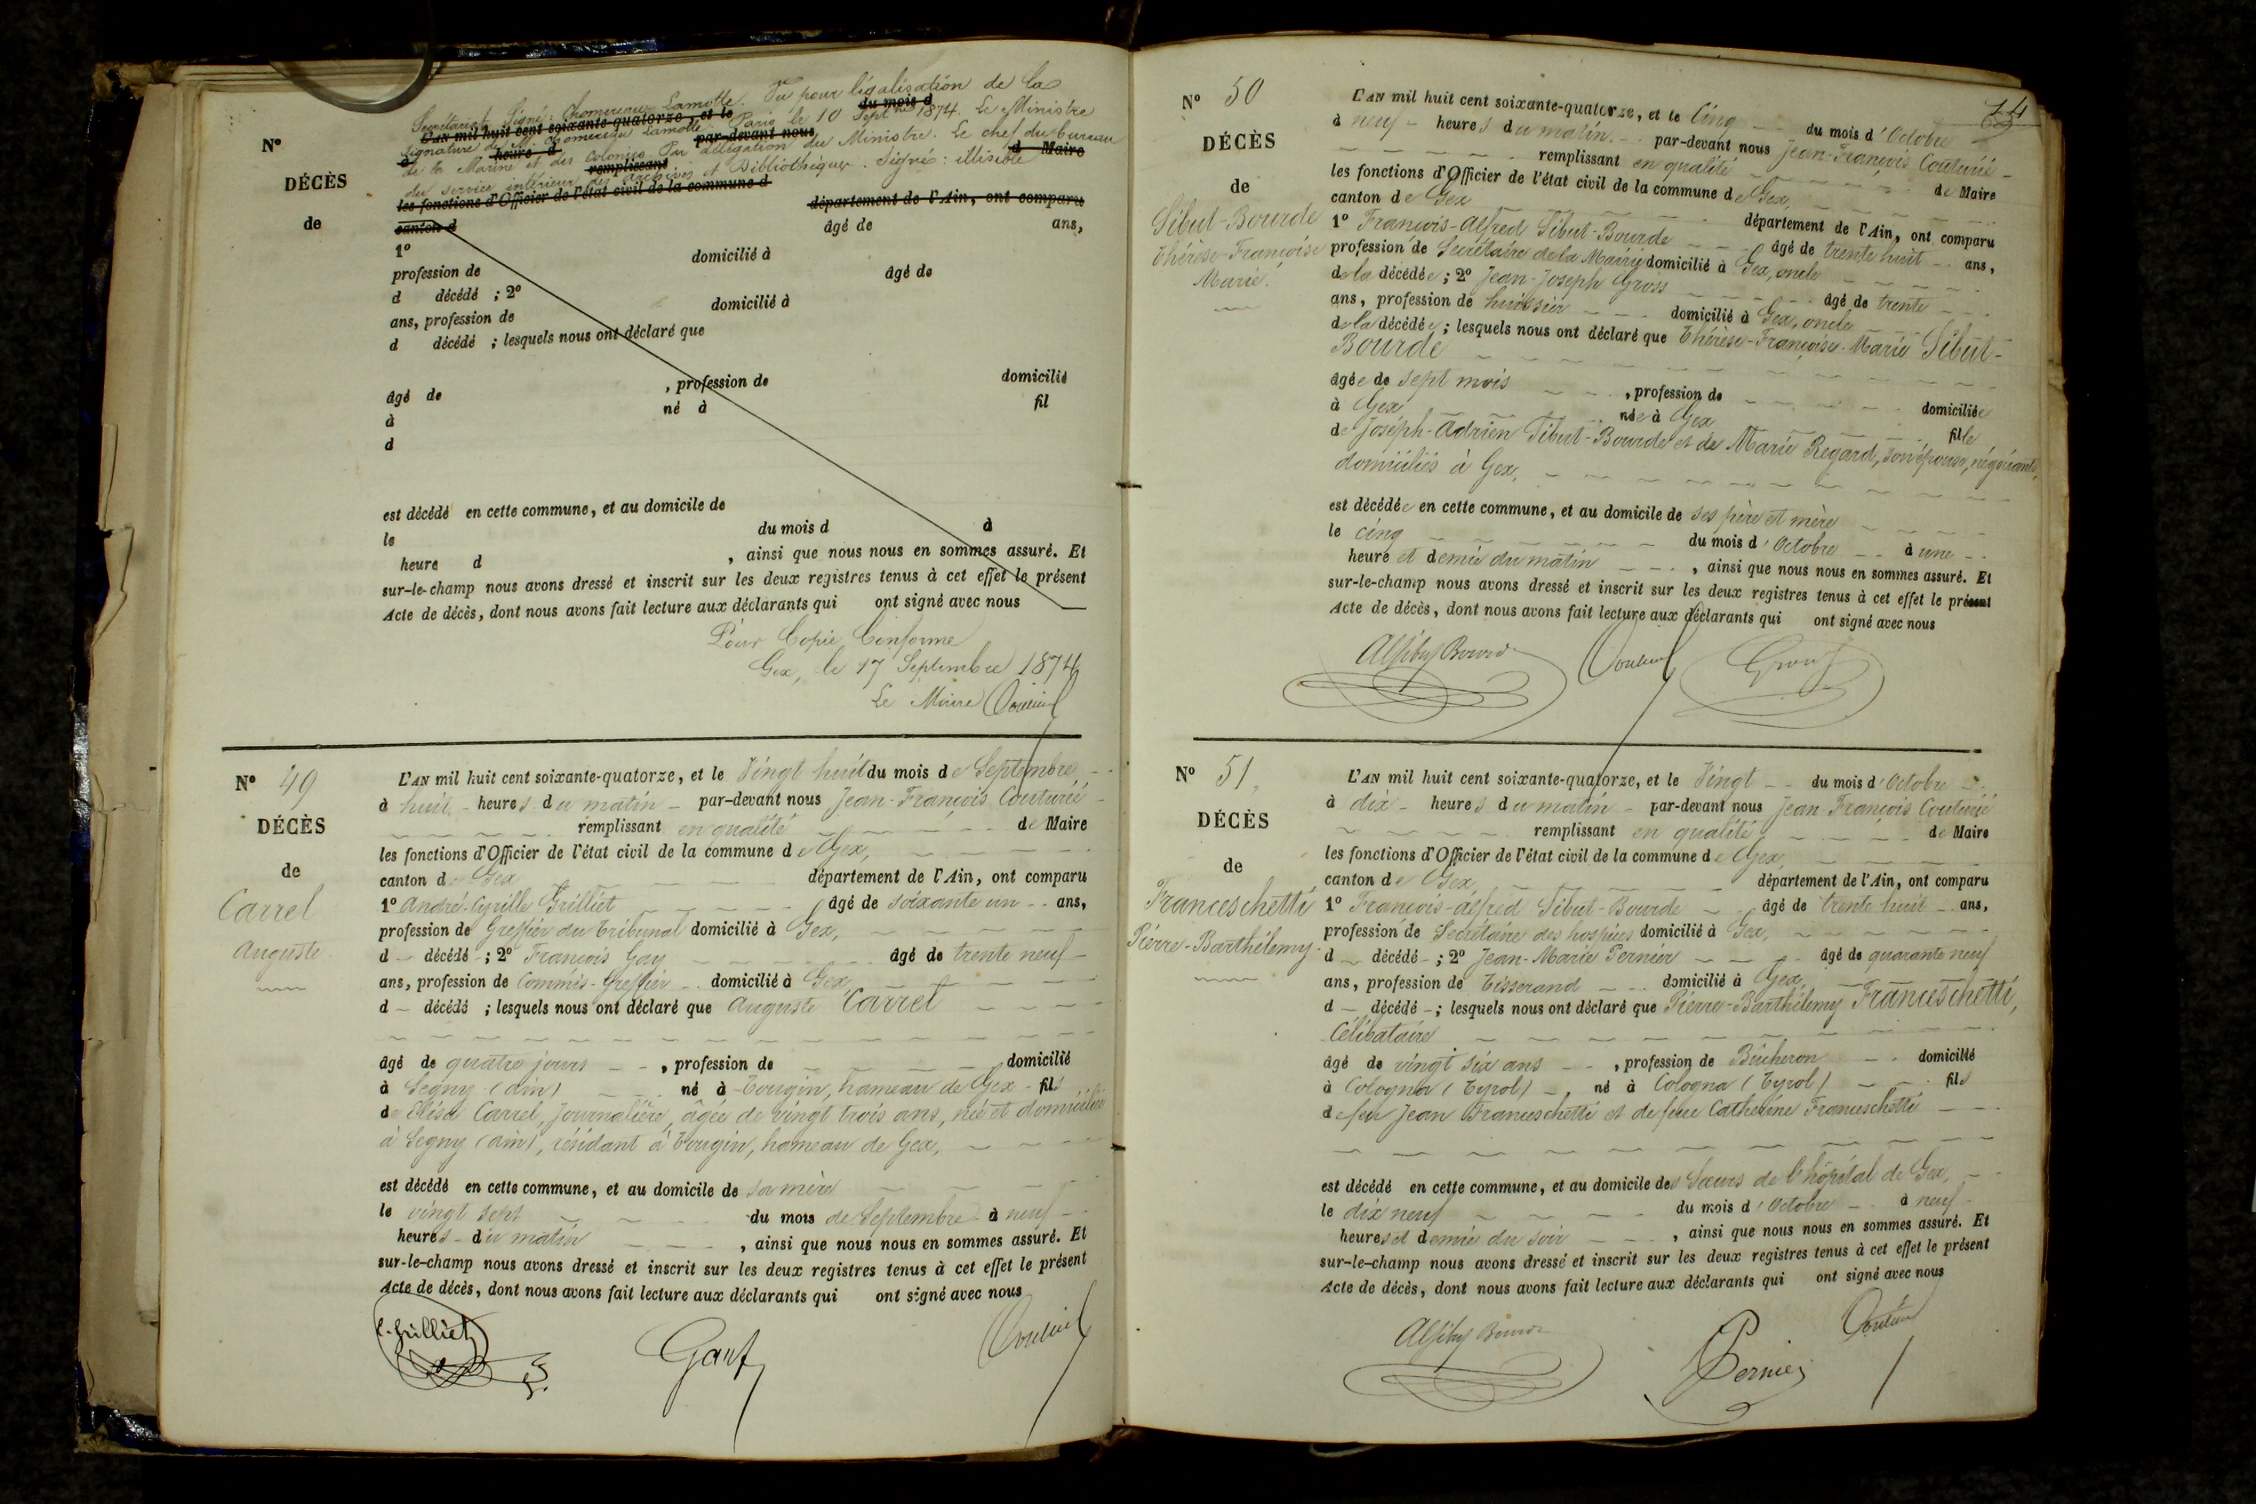 Secrétariat. Signé: Chomereau Lamotte. Vu pour légalisation de la
L'AN mil huit cent soixante-quatorze, et le du mois d
signature de M. Chomereau Lamotte Paris le 10 Septbre 1874. Le Ministre
à heure d par-devant nous
de la Marine et des Colonies Par délégation du Ministre. Le chef du bureau
remplissant d Maire
du service intérieur des Archives et Bibliothèques. Signé: illisible
les fonctions d'Officier de l'état civil de la commune d
canton d département de l'Ain, ont comparu
Nº
DÉCÈS
de
1º âgé de ans,
profession de domicilié à
d décédé ; 2º âgé de
ans, profession de domicilié à
d décédé ; lesquels nous ont déclaré que
âgé de , profession de domicilié
à né à fil
d
est décédé en cette commune, et au domicile de
le du mois d à
heure d , ainsi que nous nous en sommes assuré. Et
sur-le-champ nous avons dressé et inscrit sur les deux registres tenus à cet effet le présent
Acte de décès, dont nous avons fait lecture aux déclarants qui ont signé avec nous
Pour Copie Conforme
Gex, le 17 Septembre 1874
Le Maire Couturié
Nº 49
DÉCÈS
de
Carrel
Auguste
L'AN mil huit cent soixante-quatorze, et le Vingt huit du mois de Septembre
à huit heures du matin par-devant nous Jean-François Couturié
remplissant en qualité de Maire
les fonctions d'Officier de l'état civil de la commune de Gex,
canton de Gex département de l'Ain, ont comparu
1º André-Cyrille Grilliet âgé de soixante un ans,
profession de Greffier du Tribunal domicilié à Gex,
d décédé ; 2º François Gay âgé de trente neuf
ans, profession de Commis-Greffier domicilié à Gex
d décédé ; lesquels nous ont déclaré que Auguste Carrel
âgé de quatre jours , profession de domicilié
à Segny (Ain) né à Tougin, hameau de Gex fils
de Élisa Carrel, Journalière, âgée de vingt trois ans, née et domiciliée
à Segny (Ain), résidant à Tougin, hameau de Gex,
est décédé en cette commune, et au domicile de sa mère
le vingt sept du mois de Septembre à neuf
heures du matin , ainsi que nous nous en sommes assuré. Et
sur-le-champ nous avons dressé et inscrit sur les deux registres tenus à cet effet le présent
Acte de décès, dont nous avons fait lecture aux déclarants qui ont signé avec nous
C. Grilliet Gay Couturié
14
Nº 50
DÉCÈS
de
Sibut-Bourde
Thérèse-Françoise
Marie.
L'AN mil huit cent soixante-quatorze, et le Cinq du mois d'Octobre
à neuf heures du matin par-devant nous Jean-François Couturié
remplissant en qualité de Maire
les fonctions d'Officier de l'état civil de la commune de Gex,
canton de Gex département de l'Ain, ont comparu
1º François-Alfred Sibut-Bourde âgé de trente huit ans,
profession de Secrétaire de la Mairie domicilié à Gex, oncle
de la décédée ; 2º Jean-Joseph Gross âgé de trente
ans, profession de huissier domicilié à Gex, oncle
de la décédée ; lesquels nous ont déclaré que Thérèse-Françoise-Marie Sibut-
Bourde
âgée de sept mois , profession de domiciliée
à Gex née à Gex fille
de Joseph-Adrien Sibut-Bourde et de Marie Regard, son épouse, négociants,
domiciliés à Gex,
est décédée en cette commune, et au domicile de ses père et mère
le cinq du mois d'Octobre à une
heure et demie du matin , ainsi que nous nous en sommes assuré. Et
sur-le-champ nous avons dressé et inscrit sur les deux registres tenus à cet effet le présent
Acte de décès, dont nous avons fait lecture aux déclarants qui ont signé avec nous
Couturié Gross
Nº 51
DÉCÈS
de
Franceschetti
Pierre-Barthélemy
L'AN mil huit cent soixante-quatorze, et le Vingt du mois d'Octobre
à dix heures du matin par-devant nous Jean François Couturié
remplissant en qualité de Maire
les fonctions d'Officier de l'état civil de la commune de Gex
canton de Gex département de l'Ain, ont comparu
1º François-Alfred Sibut-Bourde âgé de trente huit ans,
profession de Secrétaire des hospices domicilié à Gex,
d décédé ; 2º Jean-Marie Pernier âgé de quarante neuf
ans, profession de Tisserand domicilié à Gex,
d décédé ; lesquels nous ont déclaré que Pierre-Barthélemy Franceschetti,
Célibataire
âgé de vingt six ans , profession de Bûcheron domicilié
à Cologna (Tyrol) , né à Cologna (Tyrol) fils
de feu Jean Franceschetti et de feue Catherine Franceschetti
est décédé en cette commune, et au domicile des Sœurs de l'hôpital de Gex,
le dix neuf du mois d'Octobre à neuf
heures et demie du soir , ainsi que nous nous en sommes assuré. Et
sur-le-champ nous avons dressé et inscrit sur les deux registres tenus à cet effet le présent
Acte de décès, dont nous avons fait lecture aux déclarants qui ont signé avec nous
Pernier Couturié